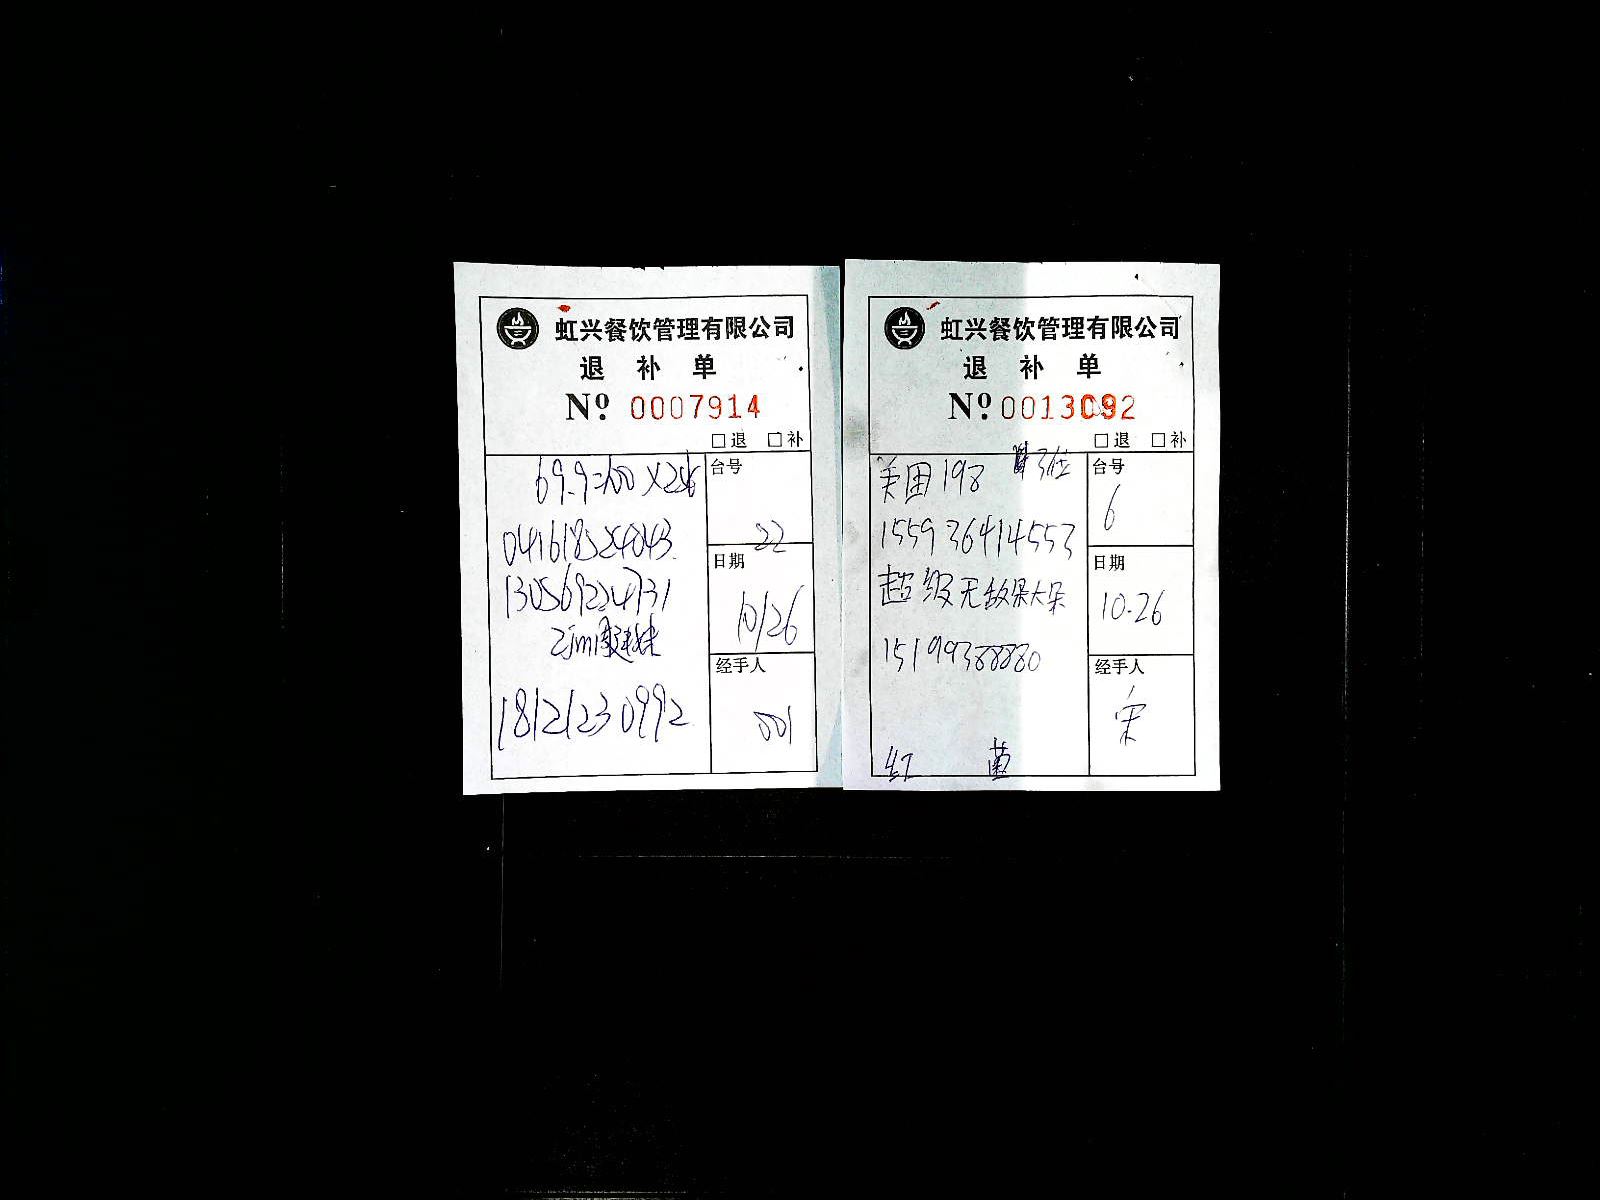 虹兴餐饮管理有限公司
退 补 单
Nº 0007914
□退 □补
69.9=100 X2
台号
22
041618324043
130569224731
日期
10/26
18121230992
经手人
001
虹兴餐饮管理有限公司
退 补 单
Nº 0013092
□退 □补
美团198
台号
6
155936414553
超级无敌朵大朵
日期
10.26
15199388880
经手人
宋
红 菌